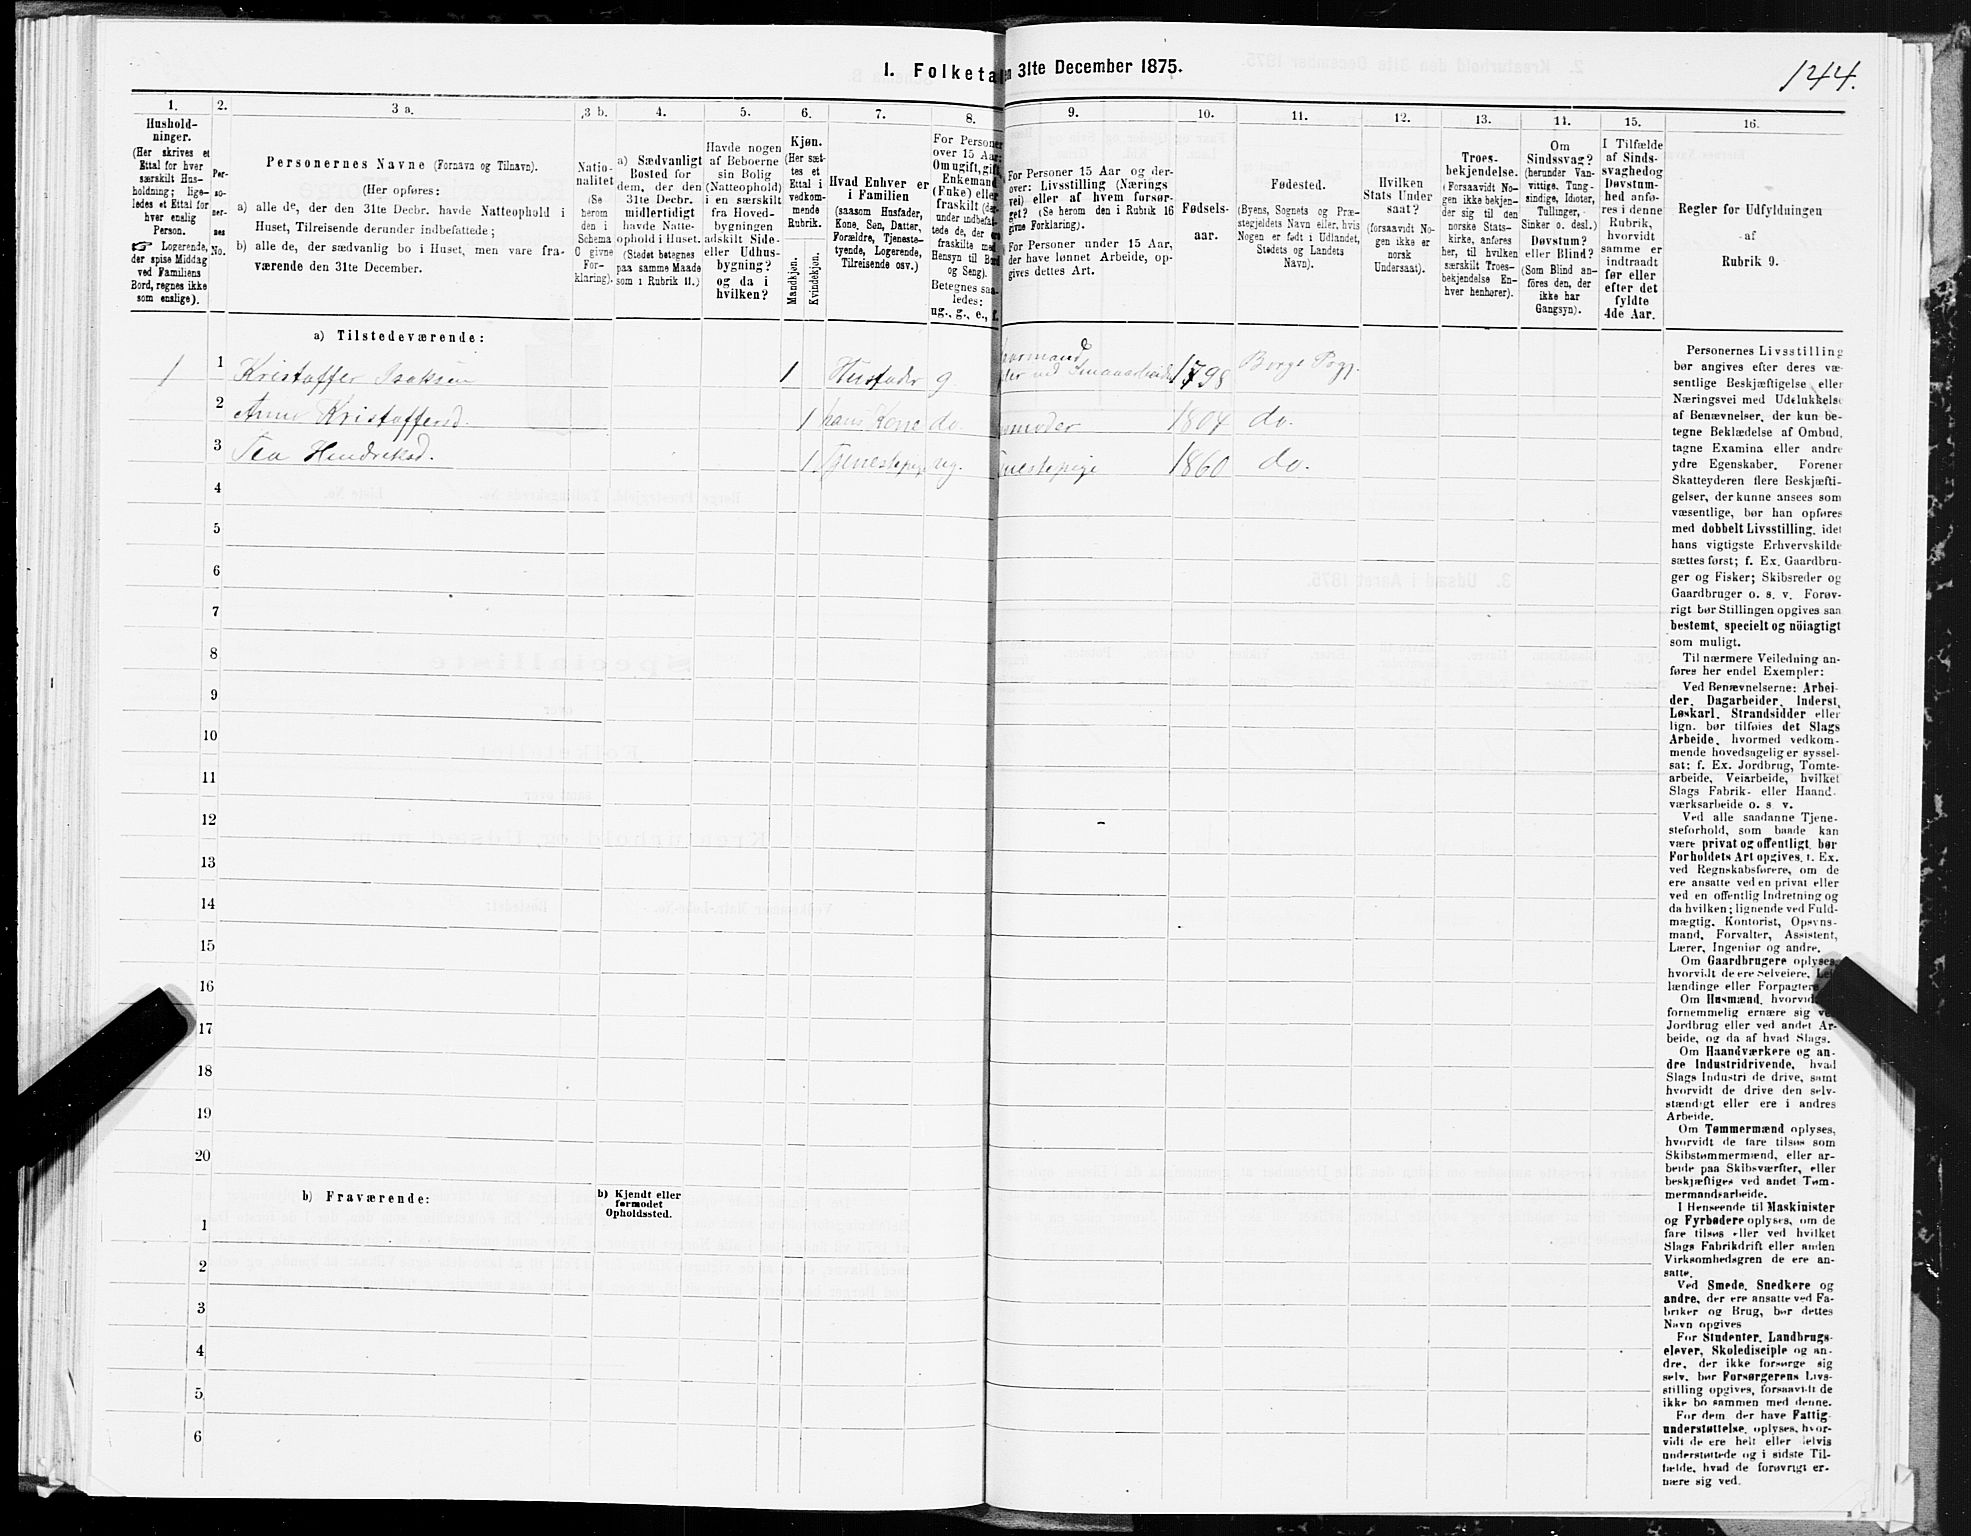 144.
1. Folketa n 31te December 1875.
1. 2. 3 a. 3 b. 4. 5. 6. 7. 8. 9. 10. 11. 12. 13. 14. 15. 16.
Hushold-
ninger.
(Her skrives et
Ettal for hver
særskilt Hus-
holdning; lige-
ledes et Ettal for
hver enslig
Person.
☞ Logerende,
der spise Middag
ved Familiens
Bord, regnes ikke
som enslige).
Per-
so-
ner-
nes
No.
Personernes Navne (Fornavn og Tilnavn).
(Her opføres:
a) alle de, der den 31te Decbr. havde Natteophold i
Huset, Tilreisende derunder indbefattede;
b) alle de, der sædvanlig bo i Huset, men vare fra-
værende den 31te December.
Natio-
nalitet
(Se
herom
den i
Schema
C givne
For-
klaring).
a) Sædvanligt
Bosted for
dem, der den
31te Decbr.
midlertidigt
havde Natte-
ophold i Huset.
(Stedet betegnes
paa samme Maade
som i Rubrik 11.)
Havde nogen
af Beboerne
sin Bolig
(Natteophold)
i en særskilt
fra Hoved-
bygningen
adskilt Side-
eller Udhus-
bygning?
og da i
hvilken?
Kjøn.
(Her sæt-
tes et
Ettal i
vedkom-
mende
Rubrik.
Mandkjøn.
Kvindekjøn.
Hvad Enhver er
i Familien
(saasom Husfader,
Kone, Søn, Datter,
Forældre, Tjeneste-
tyende, Logerende,
Tilreisende osv.)
For Personer
over 15 Aar:
Om ugift, gift,
Enkemand
(Enke) eller
fraskilt (der-
under indbefat-
tede de, der ere
fraskilte med
Hensyn til Bord
og Seng).
Betegnes saa-
ledes:
ug., g., e., f.
For Personer 15 Aar og der-
over: Livsstilling (Nærings
vei) eller af hvem forsør-
get? (Se herom den i Rubrik 16
givne Forklaring).
For Personer under 15 Aar,
der have lønnet Arbeide, op-
gives dettes Art.
Fødsels-
aar.
Fødested.
(Byens, Sognets og Præ-
stegjeldets Navn eller, hvis
Nogen er født i Udlandet,
Stedets og Landets
Navn).
Hvilken
Stats Under
saat?
(forsaavidt No-
gen ikke er
norsk
Undersaat).
Troes-
bekjendelse.
(Forsaavidt No-
gen ikke bekjen-
der sig til den
norske Stats-
kirke, anføres
her, til hvilken
særskilt Troes-
bekjendelse En-
hver henhører).
Om
Sindssvag?
(herunder Van-
vittige, Tung-
sindige, Idioter,
Tullinger,
Sinker o. desl.)
Døvstum?
eller Blind?
(Som Blind an-
føres den, der
ikke har
Gangsyn).
I Tilfælde
af Sinds-
svaghed og
Døvstum-
hed anfø-
res i denne
Rubrik,
hvorvidt
samme er
indtraadt
før eller
efter det
fyldte
4de Aar.
Regler for Udfyldningen
af
Rubrik 9.
a) Tilstedeværende:
1 1 Kristoffer Isaksen 1 Husfader g. 1798 Borge Pgj.
2 Anne Kristoffersd. 1 hans Kone do. 1804 do.
3 Tea Hendriksd. 1 Tjenestepige ug. 1860 do.
4
5
6
7
8
9
10
11
12
13
14
15
16
17
18
19
20
b) Fraværende:
b) Kjendt eller
formodet
Opholdssted.
1
2
3
4
5
6
Personernes Livsstilling
bør angives efter deres væ-
sentlige Beskjæftigelse eller
Næringsvei med Udelukkelse
af Benævnelser, der kun be-
tegne Beklædelse af Ombud,
tagne Examina eller andre
ydre Egenskaber. Forener
Skatteyderen flere Beskjæfti-
gelser, der kunne ansees som
væsentlige, bør han opføres
med dobbelt Livsstilling, idet
hans vigtigste Erhvervskilde
sættes først; f. Ex. Gaardbru-
ger og Fisker; Skibsreder og
Gaardbruger o. s. v. Forøv-
rigt bør Stillingen opgives saa
bestemt, specielt og nöiagtigt
som muligt.
Til nærmere Veiledning an-
føres her endel Exempler:
Ved Benævnelserne: Arbei-
der, Dagarbeider, Inderst,
Løskarl, Strandsidder eller
lign. bør tilføies det Slags
Arbeide, hvormed vedkom-
mende hovedsagelig er syssel-
sat; f. Ex. Jordbrug, Tomte-
arbeide, Veiarbeide, hvilket
Slags Fabrik- eller Haand-
værksarbeide o. s. v.
Ved alle saadanne Tjene-
steforhold, som baade kan
være privat og offentligt, bør
Forholdets Art opgives, f. Ex.
ved Regnskabsførere, om de
ere ansatte ved en privat eller
ved en offentlig Indretning og
da hvilken; lignende ved Fuld-
mægtig, Kontorist, Opsyns-
mand, Forvalter, Assistent,
Lærer, Ingeniør og andre.
Om Gaardbrugere oplyses,
hvorvidt de ere Selveiere, Lei-
lændinge eller Forpagtere
Om Husmænd, hvorvidt
fornemmelig ernære sig ved
Jordbrug eller ved andet Ar-
beide, og da af hvad Slags.
Om Haandværkere og an-
dre Industridrivende, hvad
Slags Industri de drive, samt
hvorvidt de drive den selv-
stændigt eller ere i andres
Arbeide.
Om Tømmermænd oplyses,
hvorvidt de fare tilsøs som
Skibstømmermænd, eller ar-
beide paa Skibsværfter, eller
beskjæftiges ved andet Tøm-
mermandsarbeide.
I Henseende til Maskinister
og Fyrbødere oplyses, om de
fare tilsøs eller ved hvilket
Slags Fabrikdrift eller anden
Virksomhedsgren de ere an-
satte.
Ved Smede, Snedkere og
andre, der ere ansatte ved Fa-
briker og Brug, bør dettes
Navn opgives
For Studenter, Landbrugs-
elever, Skoledisciple og an-
dre, der ikke forsørge sig
selv, bør Forsørgerens Livs-
stilling opgives, forsaavidt de
ikke bo sammen med denne.
For dem der have Fattig-
understøttelse, oplyses, hvor-
vidt de ere helt eller delvis
understøttede og i sidste Til-
fælde, hvad de forøvrigt er-
nære sig ved.